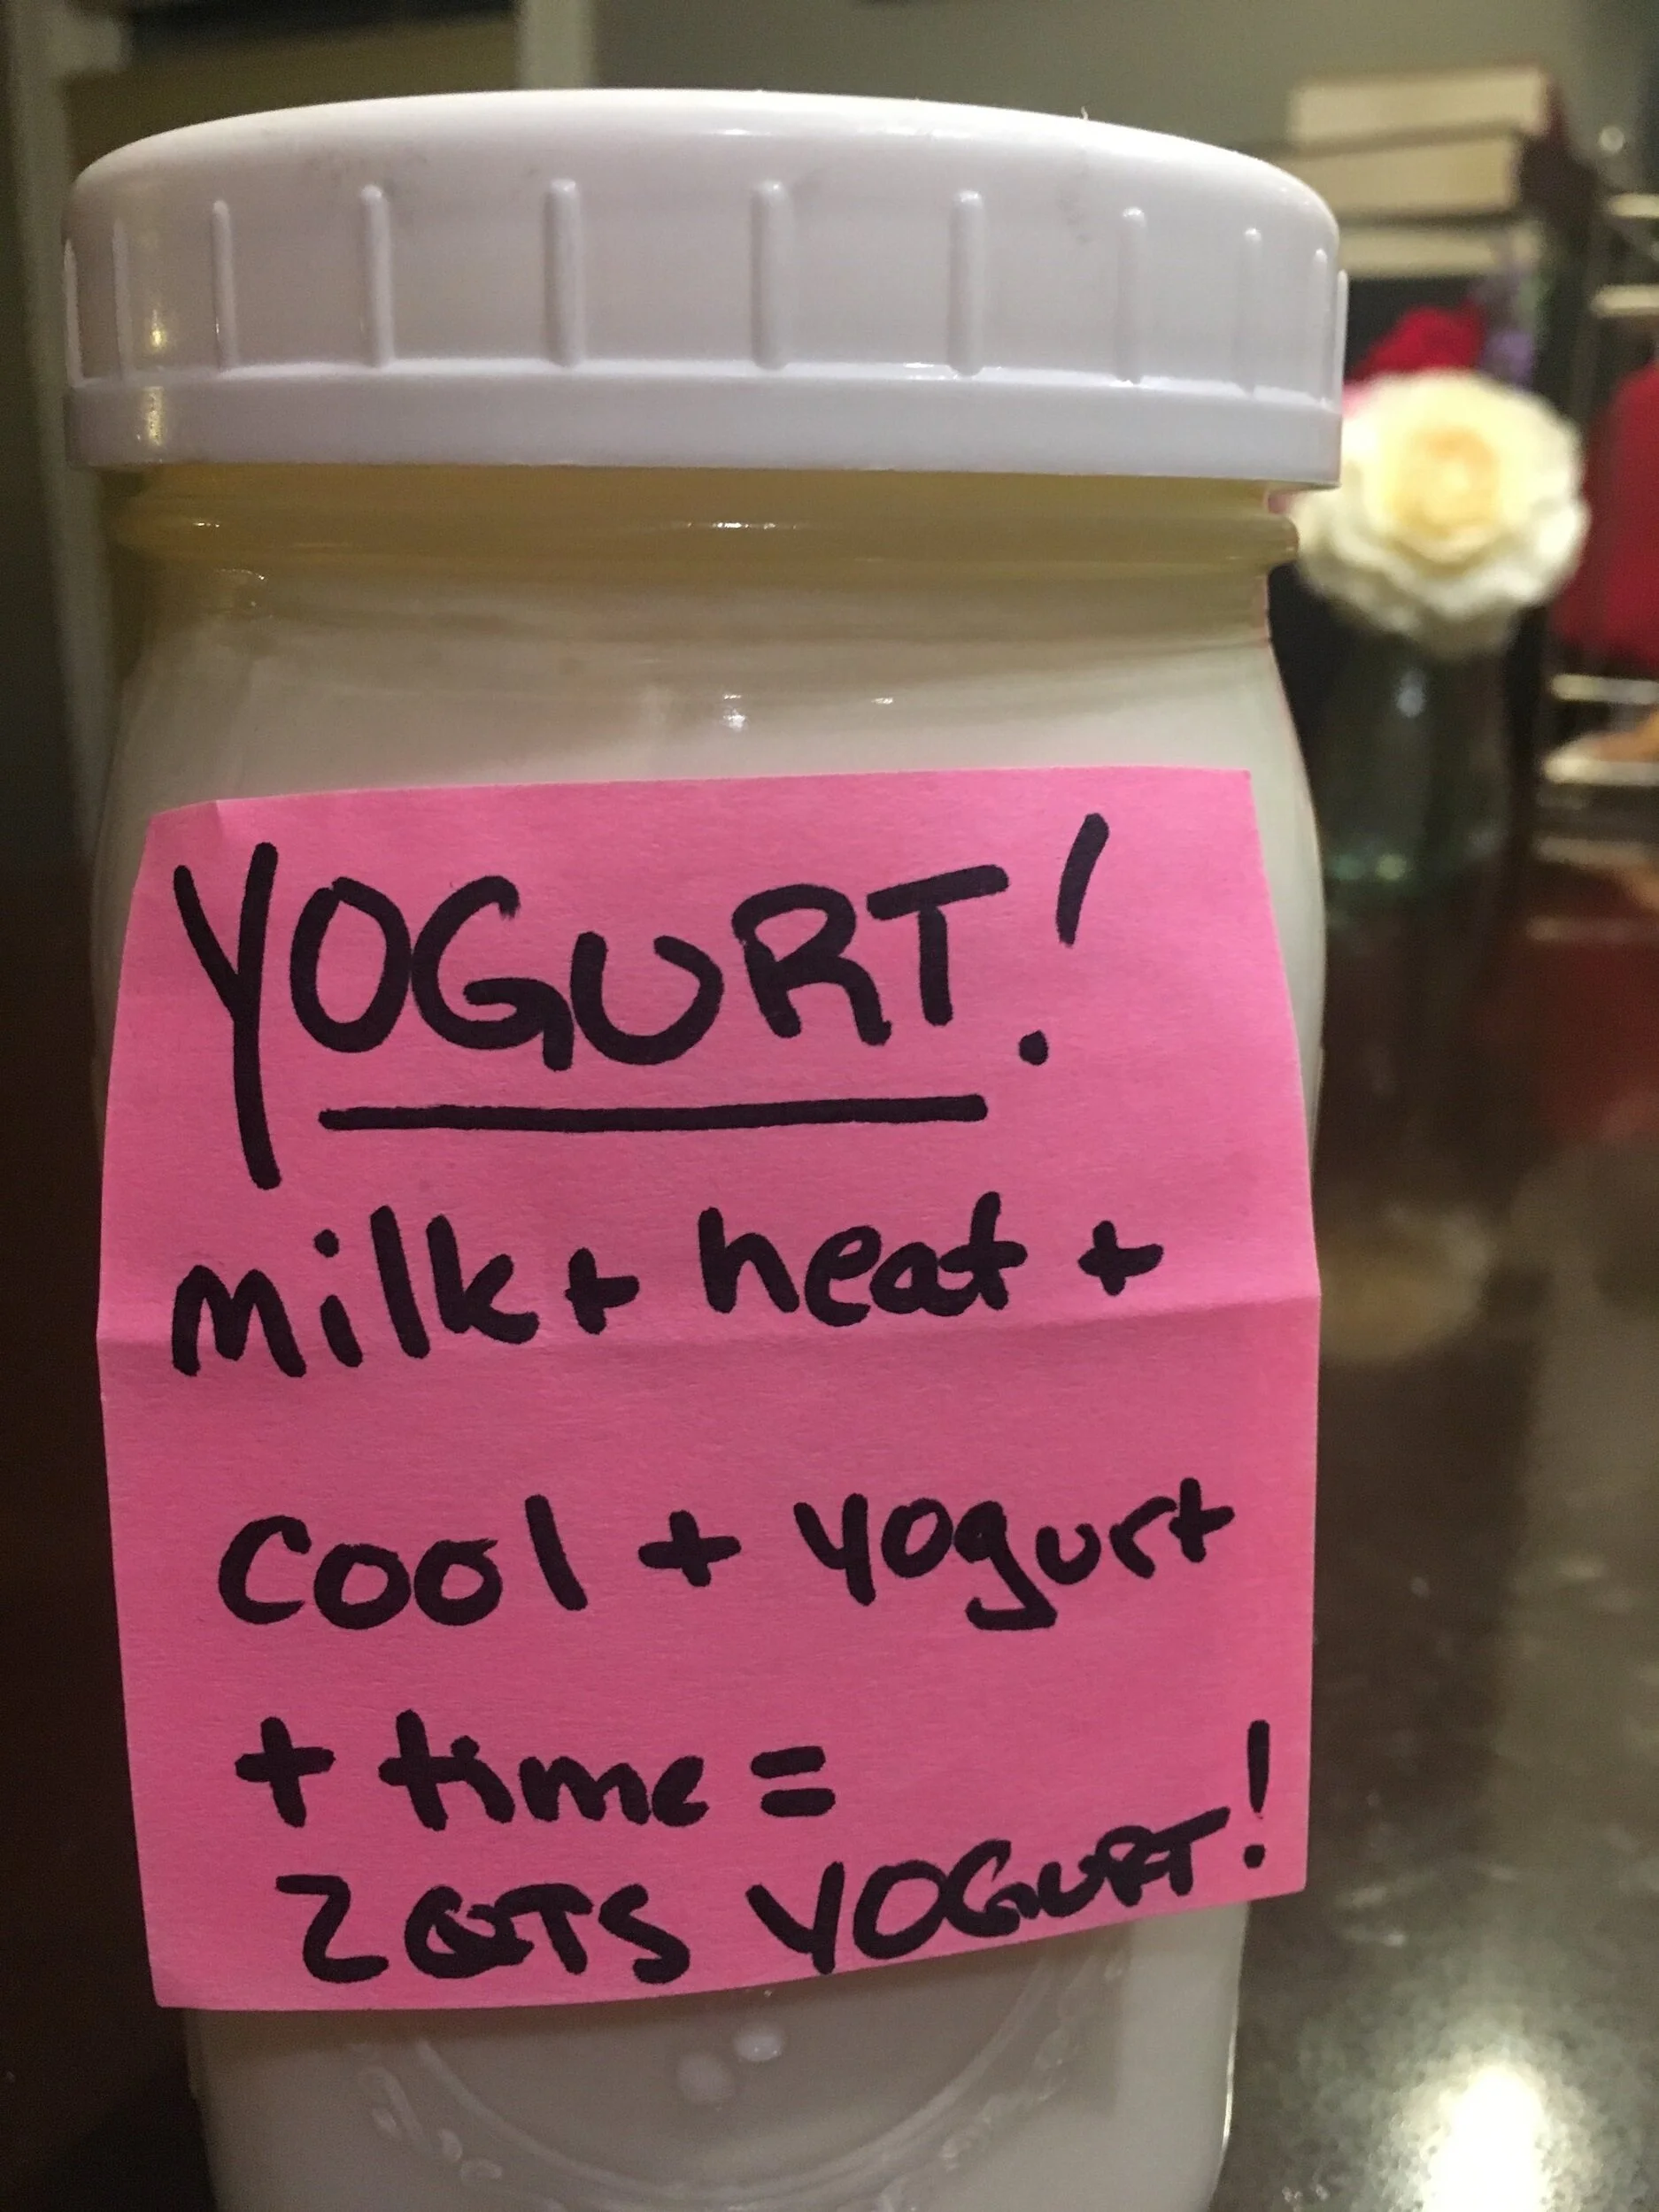 YOGURT!
milk + heat +
cool + yogurt
+ time =
2 QTS YOGURT!